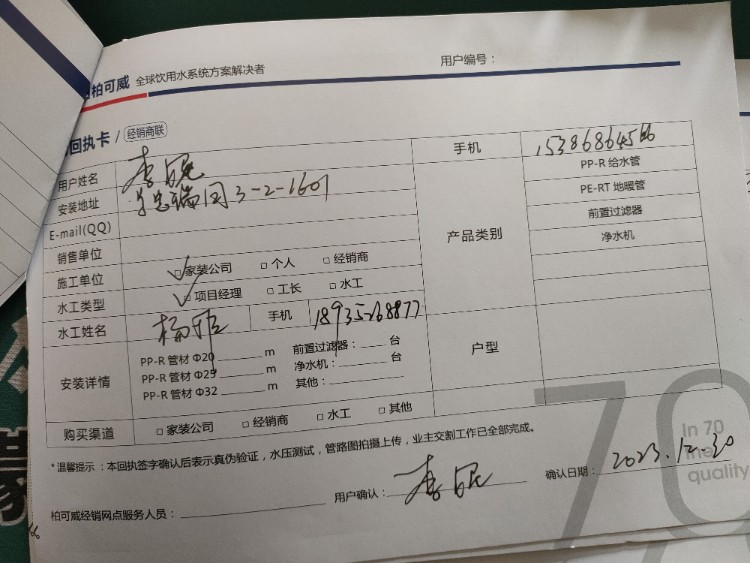 柏可威 全球饮用水系统方案解决者 用户编号：
回执卡 / 经销商联
用户姓名 李 手机 15386864566
安装地址 瑞园3-2-1601
E-mail(QQ)
销售单位
施工单位 ✓□家装公司 □个人 □经销商
水工类型 ✓□项目经理 □工长 □水工
水工姓名 杨 手机 18935268877
产品类别
PP-R 给水管
PE-RT 地暖管
前置过滤器
净水机
安装详情
PP-R 管材 Φ20 ______ m 前置过滤器：____ 台
PP-R 管材 Φ25 ______ m 净水机：____ 台
PP-R 管材 Φ32 ______ m 其他：
户型
购买渠道 □家装公司 □经销商 □水工 □其他
*温馨提示：本回执签字确认后表示真伪验证，水压测试，管路图拍摄上传，业主交割工作已全部完成。
柏可威经销网点服务人员： 用户确认：李 确认日期：2023.12.30
70
In 70
the
quality